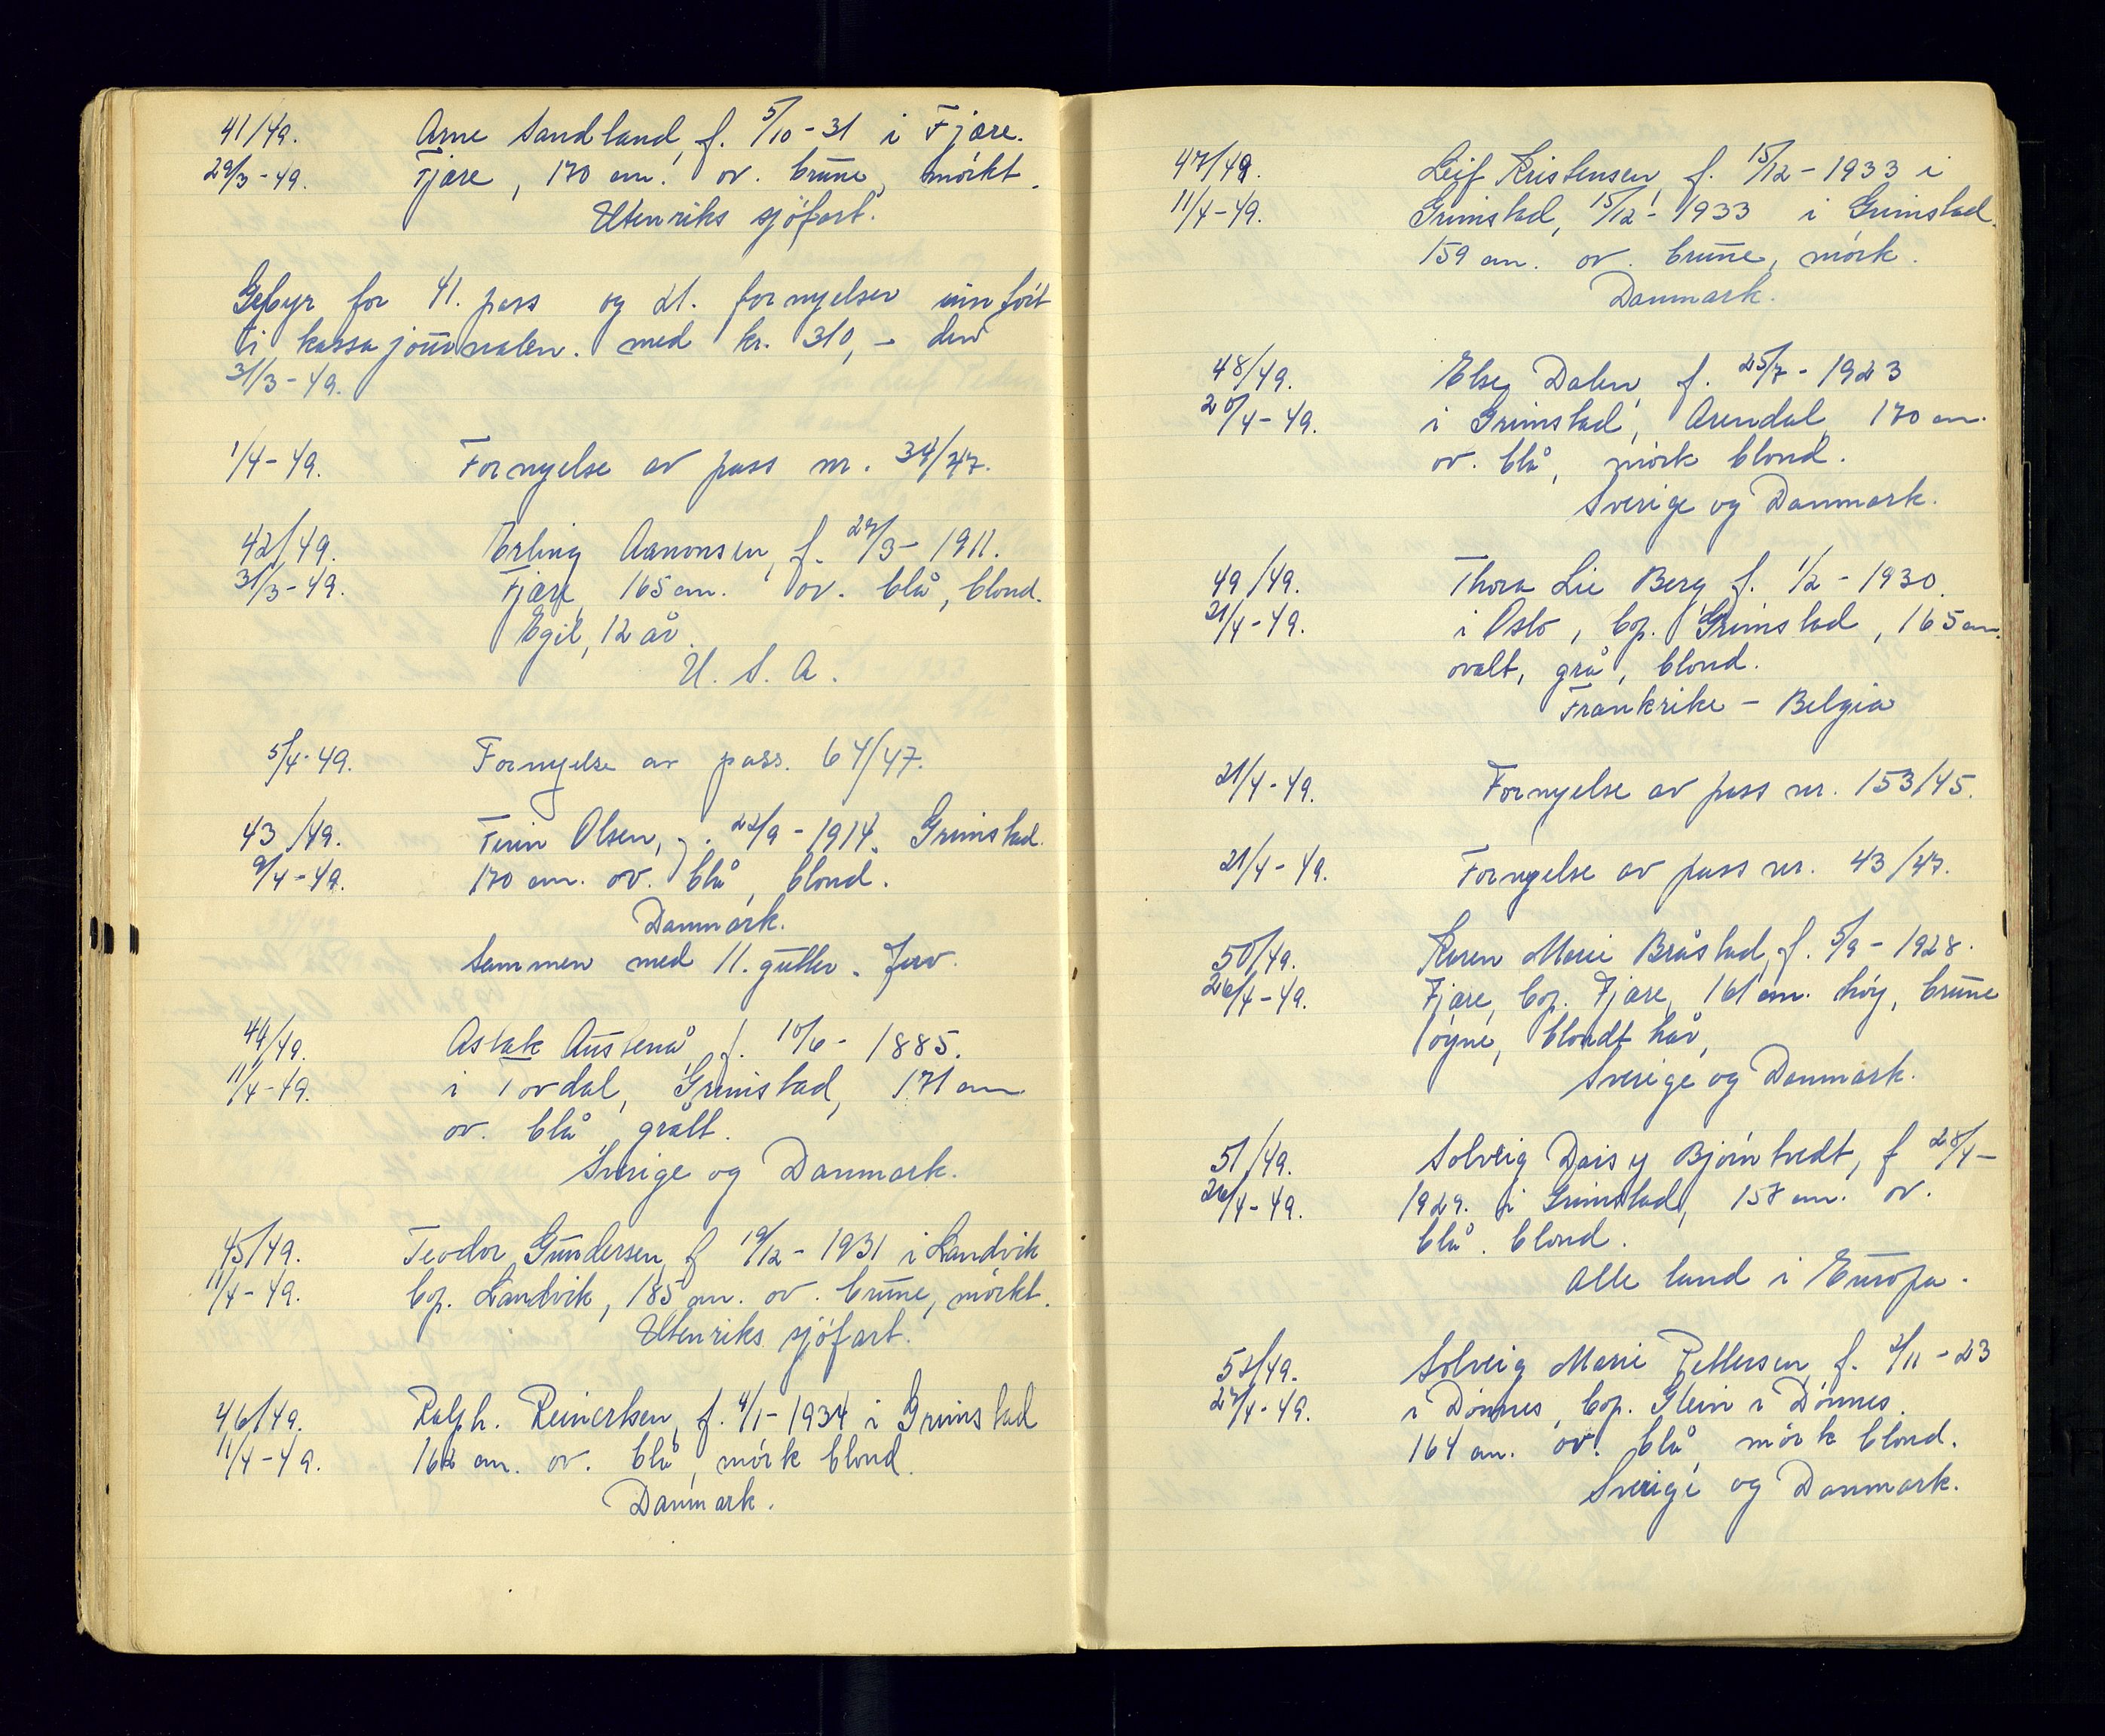 41/49. Arne Sandland, f. 5/10-31 i Fjære.
29/3-49. Fjære, 170 cm. ov. brune, mørkt.
Utenriks sjøfart.
Gebyr for 41. pass og 21. fornyelser innført
i kassajournalen. med kr. 310,- den
31/3-49.
1/4-49. Fornyelse av pass nr. 34/47.
42/49. Erling Aanonsen, f. 29/3-1911.
31/3-49. Fjære, 165 cm. ov. blå, blond.
Egil, 12 år.
U. S. A.
5/4-49. Fornyelse av pass. 64/47.
43/49. Finn Olsen, f. 22/9-1914. Grimstad.
9/4-49. 170 cm. ov. blå, blond.
Danmark.
Sammen med 11. gutter. Jerv.
44/49. Aslak Austenå, f. 10/6-1885.
11/4-49. i Tovdal, Grimstad, 171 cm
ov. blå, grått.
Sverige og Danmark.
45/49. Teodor Gundersen, f 19/12-1931 i Landvik
11/4-49. bop. Landvik, 185 cm. ov. brune, mørkt.
Utenriks sjøfart.
46/49. Ralph. Reinertsen, f. 4/1-1934 i Grimstad
11/4-49. 162 cm. ov. blå, mørk blond.
Danmark.
47/49. Leif Kristensen, f. 15/12-1933 i
11/4-49. Grimstad, 15/12-1933 i Grimstad.
159 cm. ov. brune, mørk.
Danmark.
48/49. Else Dalen, f. 25/7-1923
20/4-49. i Grimstad, Arendal, 170 cm.
ov. blå, mørk blond.
Sverige og Danmark.
49/49. Thora Lie Berg f. 1/2-1930.
21/4-49. i Oslo, bop. Grimstad, 165 cm.
ovalt, grå, blond.
Frankrike - Belgia
21/4-49. Fornyelse av pass nr. 153/45.
21/4-49. Fornyelse av pass nr. 43/47.
50/49. Karen Marie Bråstad, f. 5/9-1928.
26/4-49. Fjære, bop. Fjære, 161 cm. høy, brune
øyne, blondt hår,
Sverige og Danmark.
51/49. Solveig Daisy Bjørntvedt, f 28/4-
26/4-49. 1929. i Grimstad, 157 cm. ov.
blå. blond.
Alle land i Europa.
52/49. Solveig Marie Pettersen, f. 2/11-23
27/4-49. i Dønnes, bop. Glein i Dønnes.
164 cm. ov. blå, mørk blond.
Sverige og Danmark.